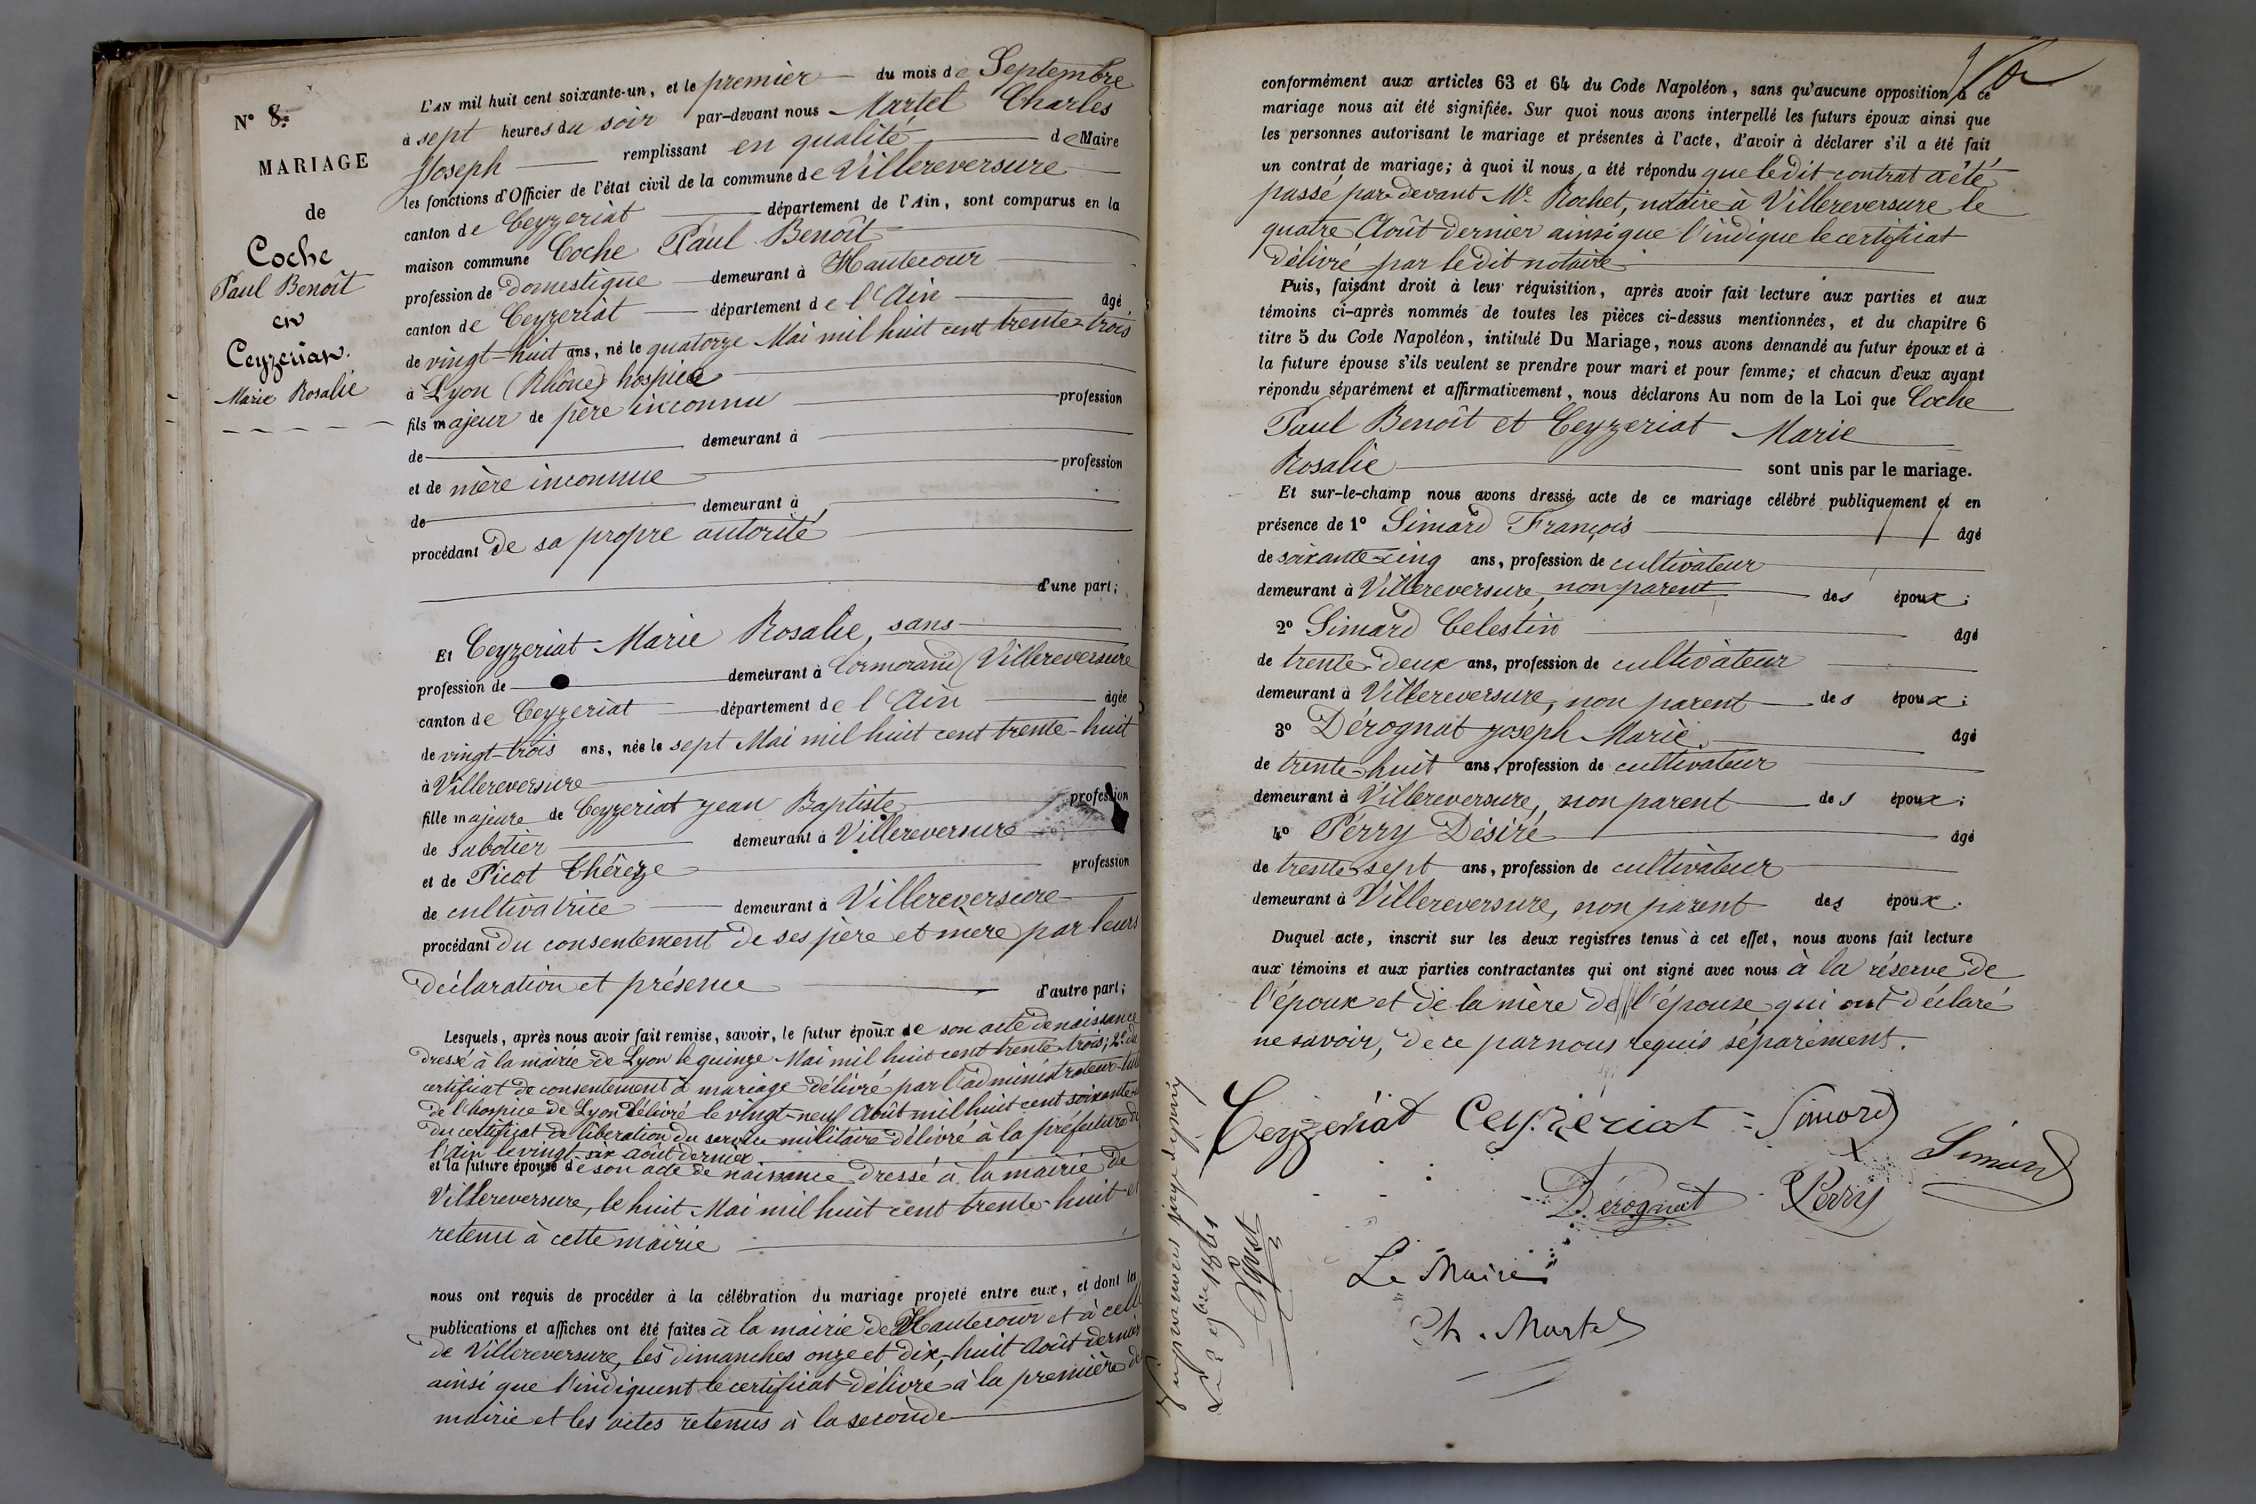 N° 8.
MARIAGE
de
Coche
Paul Benoît
en
Ceyzeriat.
Marie Rosalie
L'AN mil huit cent soixante-un, et le premier du mois de Septembre
à sept heures du soir par-devant nous Martel Charles
Joseph remplissant en qualité de Maire
les fonctions d'Officier de l'état civil de la commune de Villereversure
canton de Ceyzeriat département de l'Ain, sont comparus en la
maison commune Coche Paul Benoît
profession de domestique demeurant à Hautecour
canton de Ceyzeriat département de l'Ain âgé
de vingt-huit ans, né le quatorze Mai mil huit cent trente-trois
à Lyon (Rhône) hospice
fils majeur de père inconnu profession
de demeurant à
et de mère inconnue profession
de demeurant à
procédant de sa propre autorité
d'une part;
Et Ceyzeriat Marie Rosalie, sans
profession de demeurant à Cormorand (Villereversure
canton de Ceyzeriat département de l'Ain âgée
de vingt-trois ans, née le sept Mai mil huit cent trente-huit
à Villereversure
fille majeure de Ceyzeriat Jean Baptiste profession
de sabotier demeurant à Villereversure
et de Picot Thérèze profession
de cultivatrice demeurant à Villereversure
procédant du consentement de ses père et mère par leurs
déclaration et présence d'autre part;
Lesquels, après nous avoir fait remise, savoir, le futur époux de son acte de naissance
dressé à la mairie de Lyon le quinze Mai mil huit cent trente-trois; 2° du
certificat de consentement à mariage délivré par l'administrateur
de l'hospice de Lyon délivré le vingt-neuf Août mil huit cent soixante
du certificat de libération du service militaire délivré à la préfecture de
l'Ain le vingt-six Août dernier
et la future épouse de son acte de naissance dressé à la mairie de
Villereversure, le huit Mai mil huit cent trente-huit et
retenu à cette mairie
nous ont requis de procéder à la célébration du mariage projeté entre eux, et dont les
publications et affiches ont été faites à la mairie de Hautecour et à celle
de Villereversure, les dimanches onze et dix-huit Août dernier
ainsi que l'indiquent le certificat délivré à la première de
mairie et les actes retenus à la seconde
conformément aux articles 63 et 64 du Code Napoléon, sans qu'aucune opposition à ce
mariage nous ait été signifiée. Sur quoi nous avons interpellé les futurs époux ainsi que
les personnes autorisant le mariage et présentes à l'acte, d'avoir à déclarer s'il a été fait
un contrat de mariage; à quoi il nous a été répondu que ledit contrat a été
passé par devant Me Rochet, notaire à Villereversure le
quatre Août dernier ainsi que l'indique le certificat
délivré par ledit notaire
Puis, faisant droit à leur réquisition, après avoir fait lecture aux parties et aux
témoins ci-après nommés de toutes les pièces ci-dessus mentionnées, et du chapitre 6
titre 5 du Code Napoléon, intitulé Du Mariage, nous avons demandé au futur époux et à
la future épouse s'ils veulent se prendre pour mari et pour femme; et chacun d'eux ayant
répondu séparément et affirmativement, nous déclarons Au nom de la Loi que Coche
Paul Benoît et Ceyzeriat Marie
Rosalie sont unis par le mariage.
Et sur-le-champ nous avons dressé acte de ce mariage célébré publiquement et en
présence de 1° Simard François âgé
de soixante-cinq ans, profession de cultivateur
demeurant à Villereversure, non parent des époux;
2° Simard Celestin âgé
de trente-deux ans, profession de cultivateur
demeurant à Villereversure, non parent des époux;
3° Dérognat Joseph Marie âgé
de trente-huit ans, profession de cultivateur
demeurant à Villereversure, non parent des époux;
4° Perry Désiré âgé
de trente-sept ans, profession de cultivateur
demeurant à Villereversure, non parent des époux.
Duquel acte, inscrit sur les deux registres tenus à cet effet, nous avons fait lecture
aux témoins et aux parties contractantes qui ont signé avec nous à la réserve de
l'époux et de la mère de l'épouse, qui ont déclaré
ne savoir, de ce par nous requis séparément.
Ceyzériat Ceyzériat Simard
Simard
Dérognat Perry
Le Maire
Ch. Martel